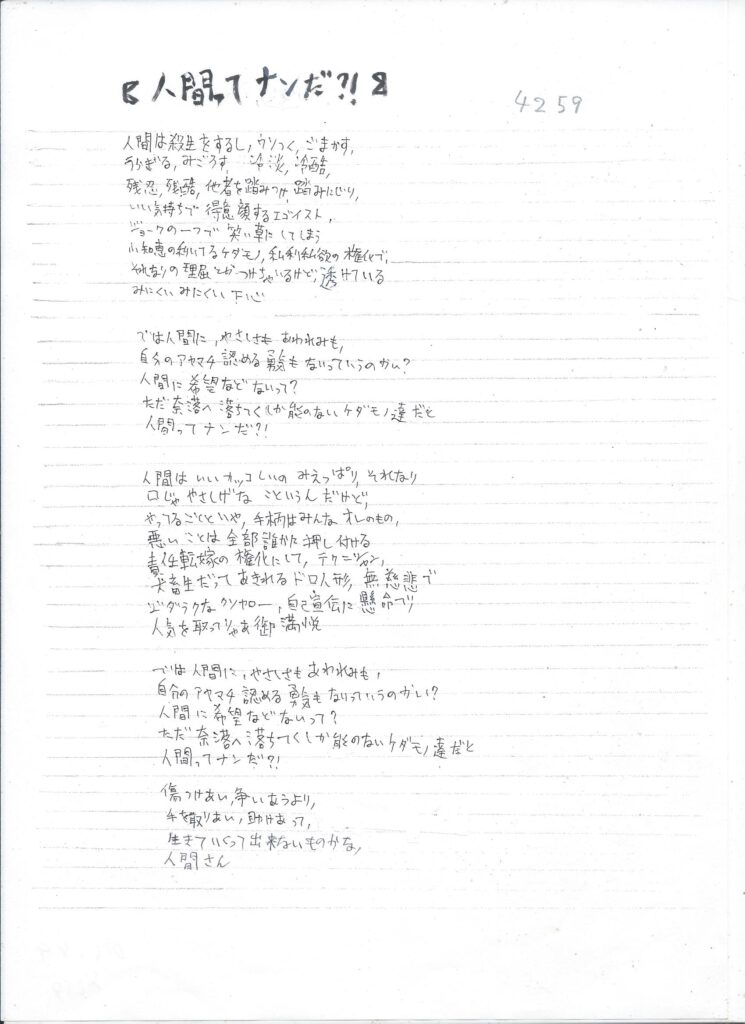 人間ってナンだ?!
4259
人間は殺生をするし,ウソつく,ごまかす,
うらぎる,みごろす, 冷淡,冷酷,
残忍,残酷,他者を踏みつけ,踏みにじり,
いい気持ちで 得意顔するエゴイスト,
ジョークの一つで 笑い草にしてしまう
小知恵の利いてるケダモノ,私利私欲の権化で,
それなりの理屈とかつけちゃいるけど,透けている
みにくいみにくい下心
では人間に,やさしさも あわれみも,
自分のアヤマチ認める勇気もないっていうのかい?
人間に希望などないって?
ただ奈落へ落ちてくしか能のないケダモノ達だと
人間ってナンだ?!
人間はいいカッコしいの みえっぱり,それなり
口じゃやさしげな こというんだけど,
やってることいや,手柄はみんなオレのもの,
悪いことは全部誰かに押し付ける
責任転嫁の権化にして,テクニシャン,
犬畜生だってあきれるドロ人形,無慈悲で
ジダラクなクソヤロー,自己宣伝に懸命で,
人気を取ってじゃあ御満悦
では人間に,やさしさもあわれみも,
自分のアヤマチ認める勇気もないっていうのかい?
人間に希望などないって?
ただ奈落へ落ちてくしか能のないケダモノ達だと
人間ってナンだ?!
傷つけあい,争いあうより,
手を取りあい,助けあって,
生きていくって出来ないものかな,
人間さん